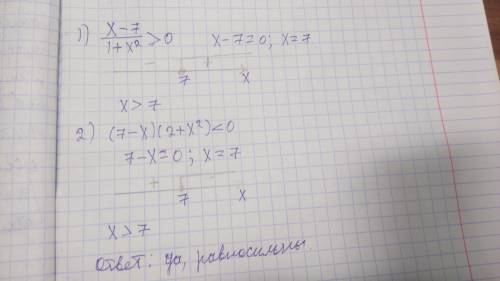 1) (x-7)/(1+x²) > 0    x-7=0; x=7
- +
7 x
x > 7
2) (7-x)(2+x²)<0
7-x=0; x=7
+ -
7 x
x > 7
Ответ: да, равносильны.